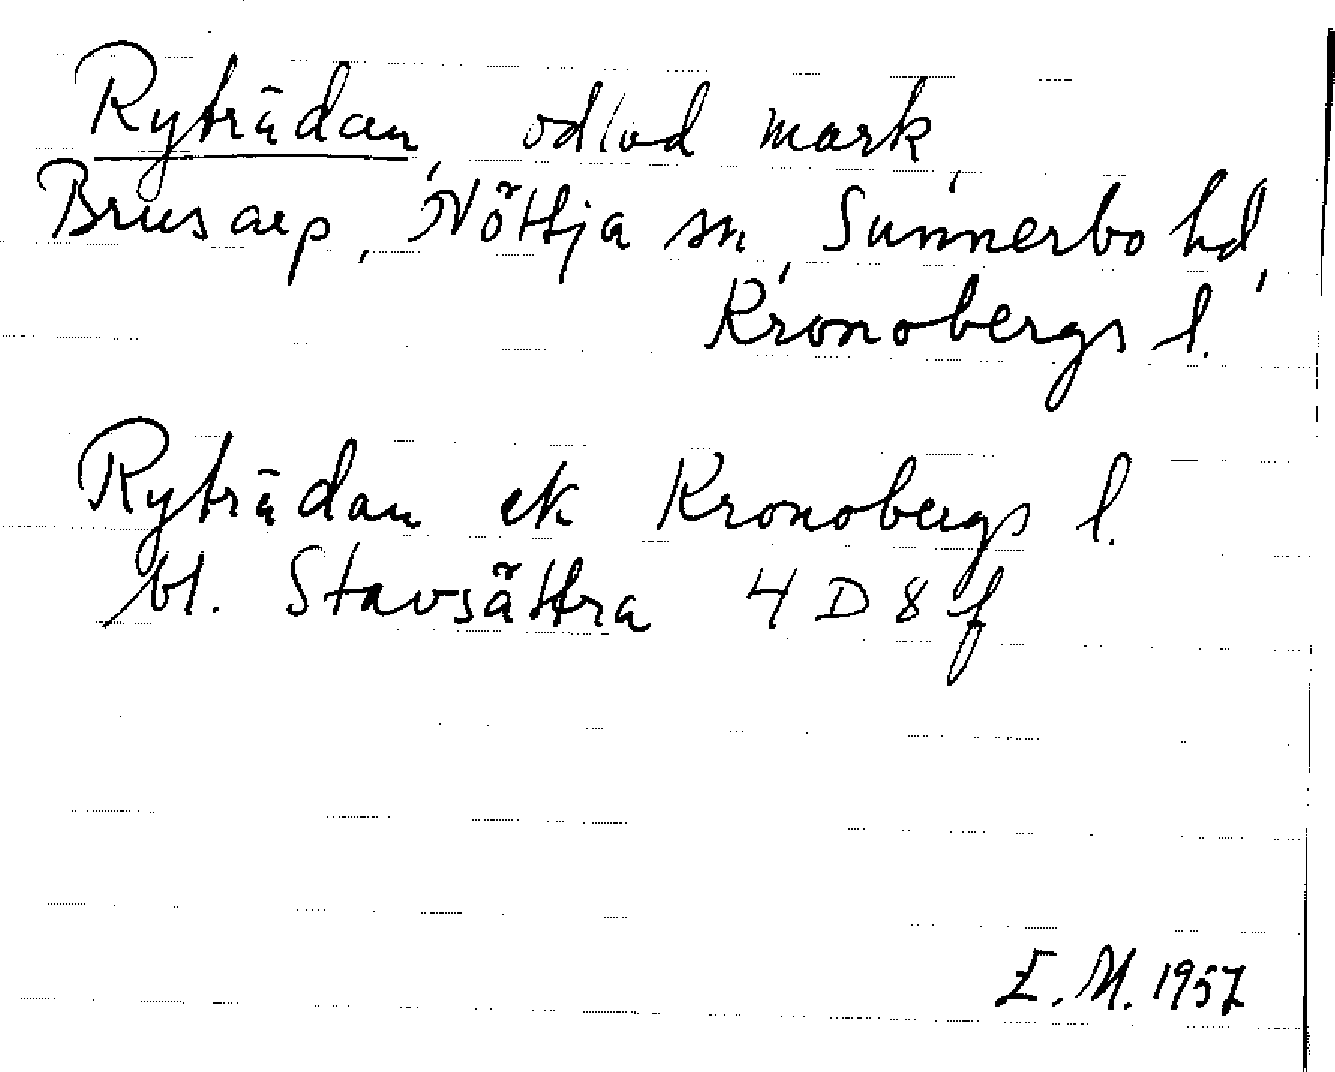 Ryträdan, odlad mark,
Brusarp, Nöttja sn, Sunnerbo hd,
Kronobergs l.
Ryträdan ek Kronobergs l.
bl. Stavsättra 4 D 8 f
E. M. 1957